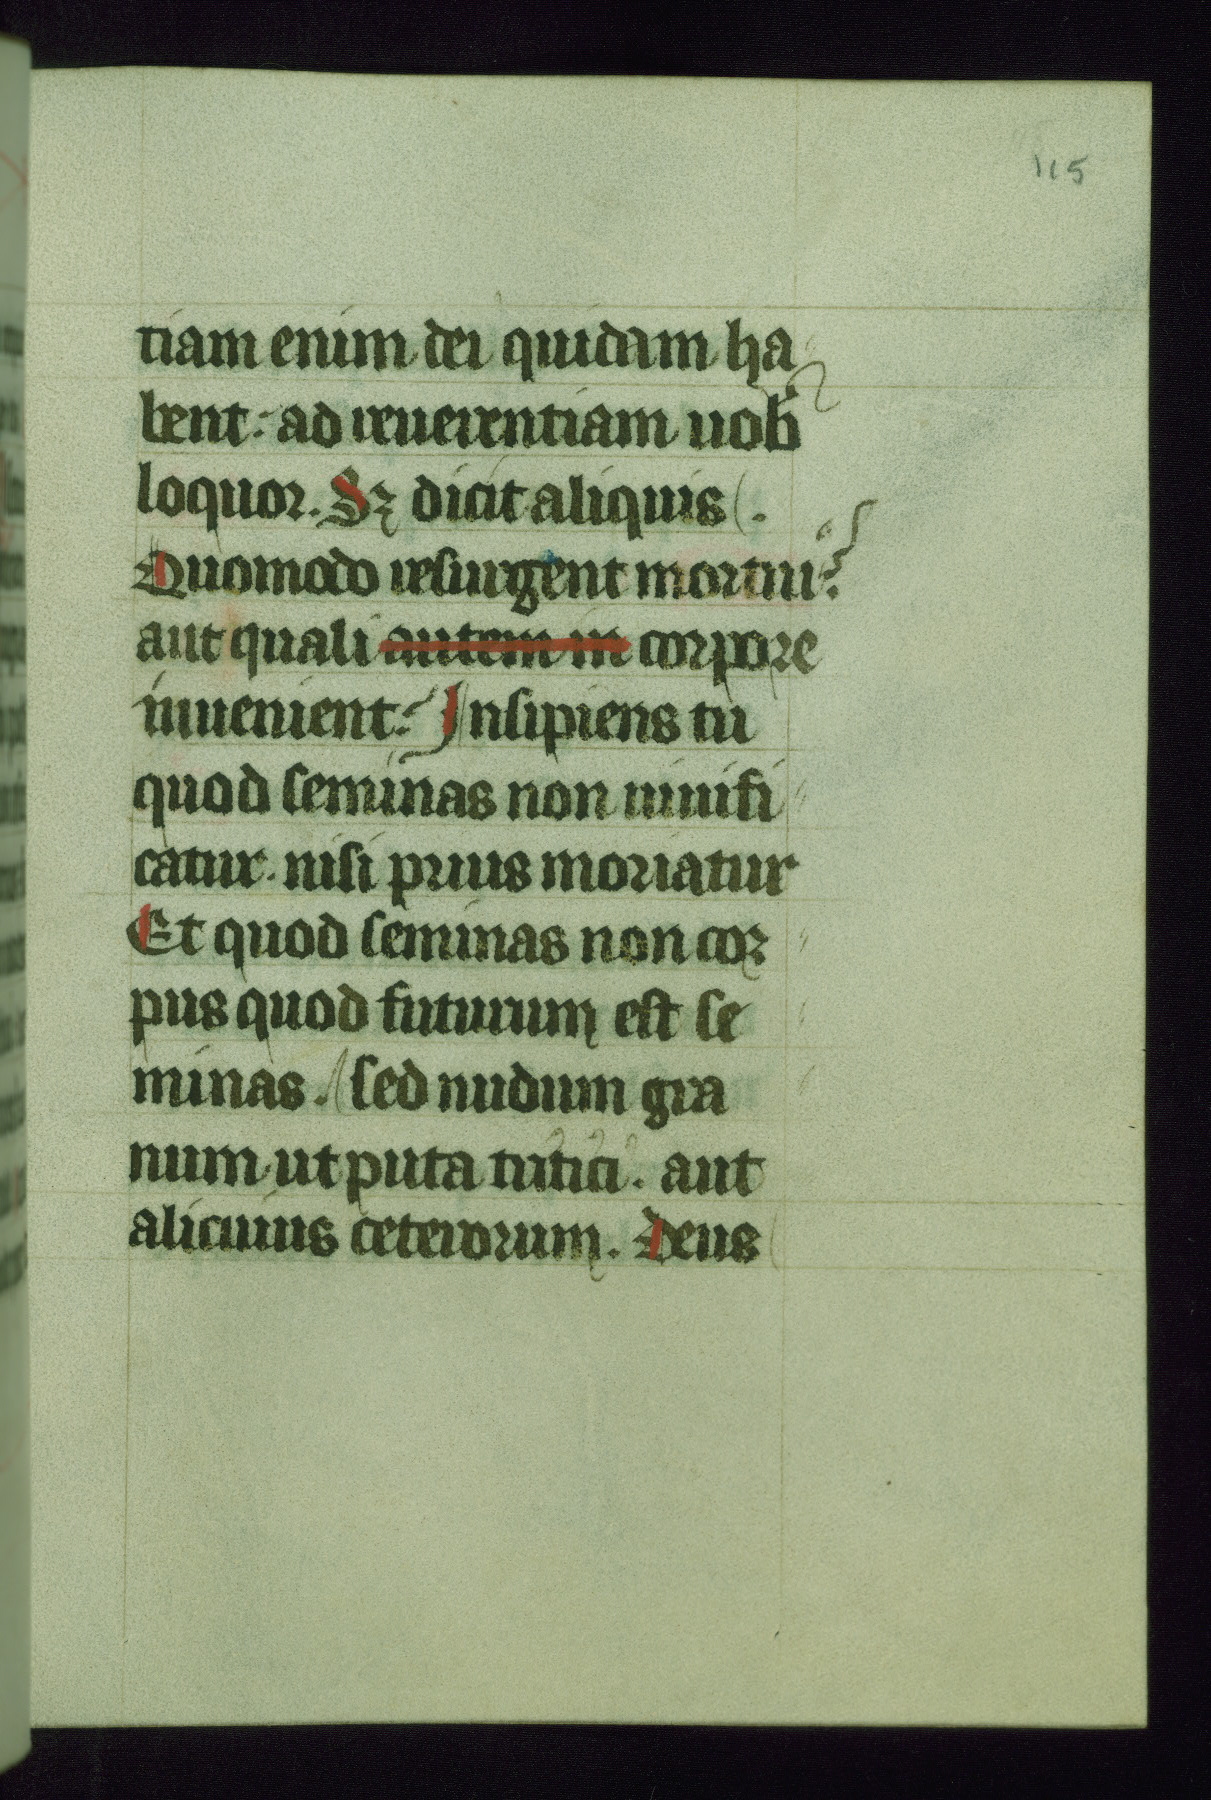 115
tiam enim dei quidam ha
bent: ad reuerentiam uob̾
loquor. Sꝫ dicit aliquis.
Quomodo resurgent mortui?
aut quali autem in corpore
inuenient? Insipiens tu
quod seminas non uiuifi
catur. nisi prius moriatur
Et quod seminas non cor
pus quod futurum est se
minas. sed nudum gra
num ut puta tritici. aut
alicuius ceterorum. Deus